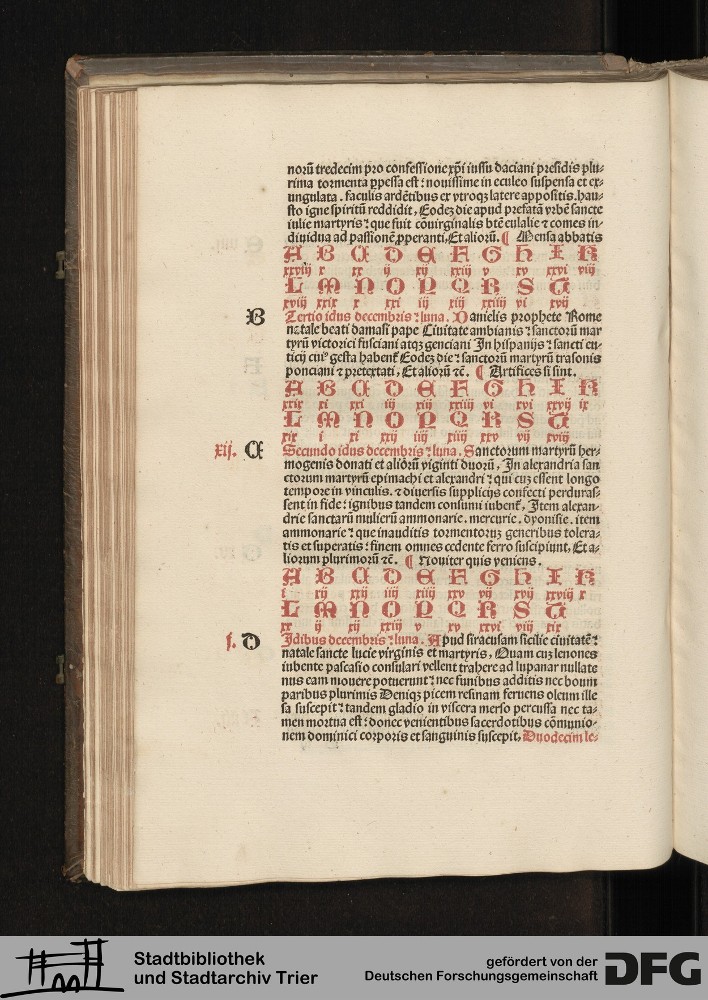 norū tredecim pro confessione xp̄i iussu daciani presidis plu-
rima tormenta ꝑpessa est : nouissime in eculeo suspensa et ex-
ungulata . faculis ardētibus ex vtroqꝫ latere appositis . hau-
sto igne spiritū reddidit , Eodeꝫ die apud prefatā vrbē sancte
iulie martyris ⁊ que fuit cōuirginalis btē eulalie ⁊ comes in-
diuidua ad passionē ꝓperanti , Et aliorū . ¶ Mensa abbatis
A B C D E F G H I K
xxviij x xx ij xij xxiij v xv xxvi viij
L M N O P Q R S T
xviij xxix x xxi iij xiij xxiiij vi xvij
B Tertio idus decembris ⁊ luna . Danielis prophete Rome
natale beati damasi pape Ciuitate ambianis ⁊ sanctorū mar
tyrū victorici fusciani atqꝫ genciani In hispanijs ⁊ sancti eu-
ticij cuiꝰ gesta habent᷑ Eodeꝫ die ⁊ sanctorū martyrū trasonis
ponciani ⁊ pretextati , Et aliorū ⁊c̄ . ¶ Artifices si sint .
A B C D E F G H I K
xxix xi xxi iij xiij xxiiij vi xvi xxvij ix
L M N O P Q R S T
xix i xi xxij iiij xiiij xxv vij xviij
xij . C Secundo idus decembris ⁊ luna . Sanctorum martyrū her-
mogenis donati et aliorū viginti duorū , In alexandria san
ctorum martyrū epimachi et alexandri ⁊ qui cuꝫ essent longo
tempore in vinculis . ⁊ diuersis supplicijs confecti perduras-
sent in fide : ignibus tandem consumi iubent᷑ , Item alexan-
drie sanctarū mulierū ammonarie . mercurie . dyonisie . item
ammonarie ⁊ que inauditis tormentoruꝫ generibus tolera-
tis et superatis : finem omnes cedente ferro suscipiunt , Et a-
liorum plurimorū ⁊c̄ . ¶ Nouiter quis veniens .
A B C D E F G H I K
i xij xxij iiij xiiij xxv vij xvij xxviij x
L M N O P Q R S T
xx ij xij xxiij v xv xxvi viij xix
i . D Idibus decembris ⁊ luna . Apud siracusam sicilie ciuitatē ⁊
natale sancte lucie virginis et martyris , Quam cuꝫ lenones
iubente pascasio consulari vellent trahere ad lupanar nullate
nus eam mouere potuerunt ⁊ nec funibus additis nec boum
paribus plurimis Deniqꝫ picem resinam feruens oleum ille
sa suscepit ⁊ tandem gladio in viscera merso percussa nec ta-
men mortua est : donec venientibus sacerdotibus cōmunio-
nem dominici corporis et sanguinis suscepit , Duodecim le-
Stadtbibliothek
und Stadtarchiv Trier
gefördert von der
Deutschen Forschungsgemeinschaft
DFG